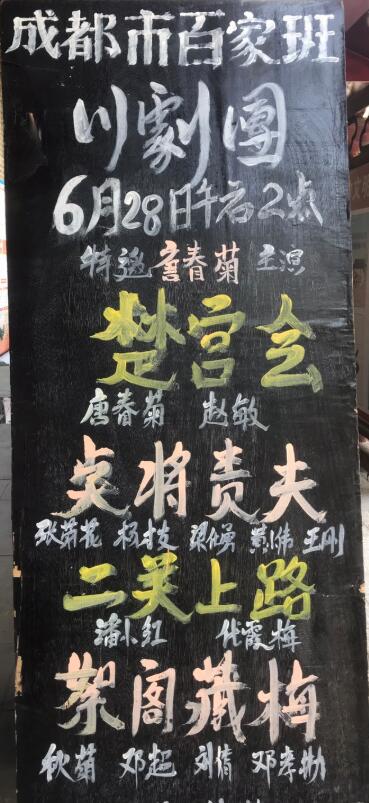 成都市百家班
川劇團
6月28日午后2点
特邀唐春菊主演
楚宫会
唐春菊 赵敏
点将责夫
张菊花 杨技 梁俊勇 黄小伟 王刚
二美上路
潘小红 化霞梅
絮阁藏梅
秋菊 邓超 刘倩 邓孝彬